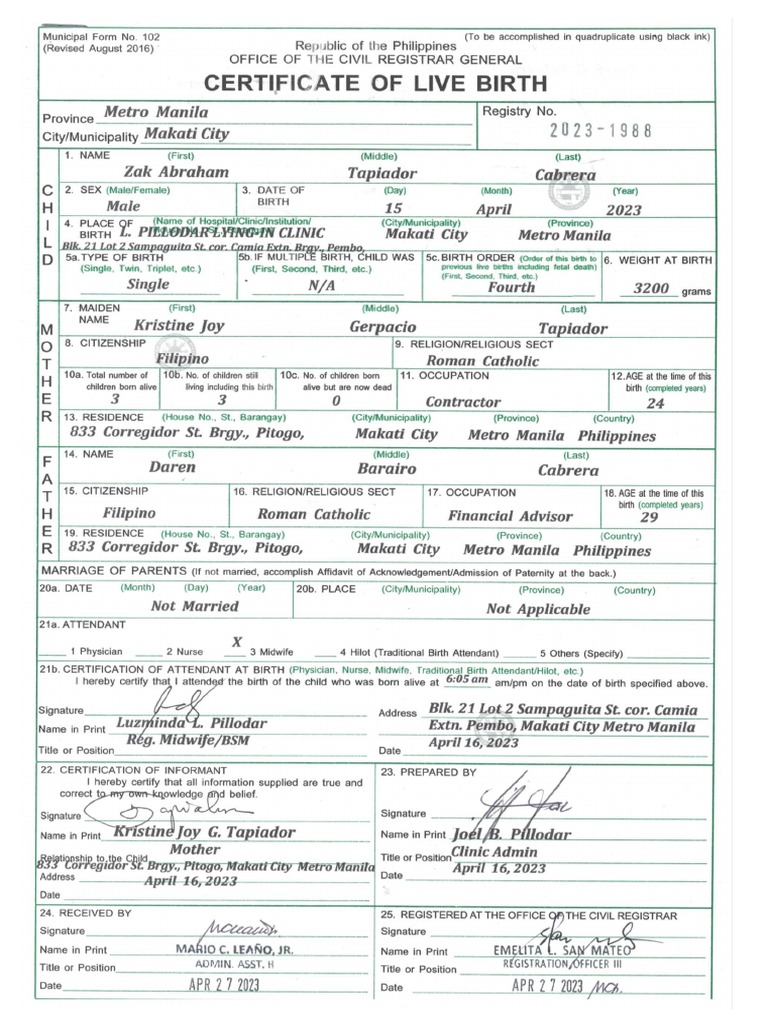 Municipal Form No. 102
(Revised August 2016)
(To be accomplished in quadruplicate using black ink)
Republic of the Philippines
OFFICE OF THE CIVIL REGISTRAR GENERAL
CERTIFICATE OF LIVE BIRTH
Province Metro Manila
City/Municipality Makati City
Registry No.
2023-1988
CHILD
1. NAME (First) (Middle) (Last)
Zak Abraham Tapiador Cabrera
2. SEX (Male/Female) 3. DATE OF BIRTH (Day) (Month) (Year)
Male 15 April 2023
4. PLACE OF BIRTH (Name of Hospital/Clinic/Institution/ (City/Municipality) (Province)
L. PILLODAR LYING-IN CLINIC Makati City Metro Manila
Blk. 21 Lot 2 Sampaguita St. cor. Camia Extn. Brgy., Pembo,
5a. TYPE OF BIRTH (Single, Twin, Triplet, etc.) 5b. IF MULTIPLE BIRTH, CHILD WAS (First, Second, Third, etc.) 5c. BIRTH ORDER (Order of this birth to previous live births including fetal death) (First, Second, Third, etc.) 6. WEIGHT AT BIRTH
Single N/A Fourth 3200 grams
MOTHER
7. MAIDEN NAME (First) (Middle) (Last)
Kristine Joy Gerpacio Tapiador
8. CITIZENSHIP 9. RELIGION/RELIGIOUS SECT
Filipino Roman Catholic
10a. Total number of children born alive 10b. No. of children still living including this birth 10c. No. of children born alive but are now dead 11. OCCUPATION 12. AGE at the time of this birth (completed years)
3 3 0 Contractor 24
13. RESIDENCE (House No., St., Barangay) (City/Municipality) (Province) (Country)
833 Corregidor St. Brgy., Pitogo, Makati City Metro Manila Philippines
FATHER
14. NAME (First) (Middle) (Last)
Daren Barairo Cabrera
15. CITIZENSHIP 16. RELIGION/RELIGIOUS SECT 17. OCCUPATION 18. AGE at the time of this birth (completed years)
Filipino Roman Catholic Financial Advisor 29
19. RESIDENCE (House No., St., Barangay) (City/Municipality) (Province) (Country)
833 Corregidor St. Brgy., Pitogo, Makati City Metro Manila Philippines
MARRIAGE OF PARENTS (If not married, accomplish Affidavit of Acknowledgement/Admission of Paternity at the back.)
20a. DATE (Month) (Day) (Year) 20b. PLACE (City/Municipality) (Province) (Country)
Not Married Not Applicable
21a. ATTENDANT
X
1 Physician 2 Nurse 3 Midwife 4 Hilot (Traditional Birth Attendant) 5 Others (Specify)
21b. CERTIFICATION OF ATTENDANT AT BIRTH (Physician, Nurse, Midwife, Traditional Birth Attendant/Hilot, etc.)
I hereby certify that I attended the birth of the child who was born alive at 6:05 am am/pm on the date of birth specified above.
Signature
Name in Print Luzminda L. Pillodar
Title or Position Reg. Midwife/BSM
Address Blk. 21 Lot 2 Sampaguita St. cor. Camia
Extn. Pembo, Makati City Metro Manila
Date April 16, 2023
22. CERTIFICATION OF INFORMANT
I hereby certify that all information supplied are true and
correct to my own knowledge and belief.
Signature
Name in Print Kristine Joy G. Tapiador
Relationship to the Child Mother
Address 833 Corregidor St. Brgy., Pitogo, Makati City Metro Manila
Date April 16, 2023
23. PREPARED BY
Signature
Name in Print Joel B. Pillodar
Title or Position Clinic Admin
Date April 16, 2023
24. RECEIVED BY
Signature
Name in Print MARIO C. LEAÑO, JR.
Title or Position ADMIN. ASST. II
Date APR 27 2023
25. REGISTERED AT THE OFFICE OF THE CIVIL REGISTRAR
Signature
Name in Print EMELITA L. SAN MATEO
Title or Position REGISTRATION OFFICER III
Date APR 27 2023